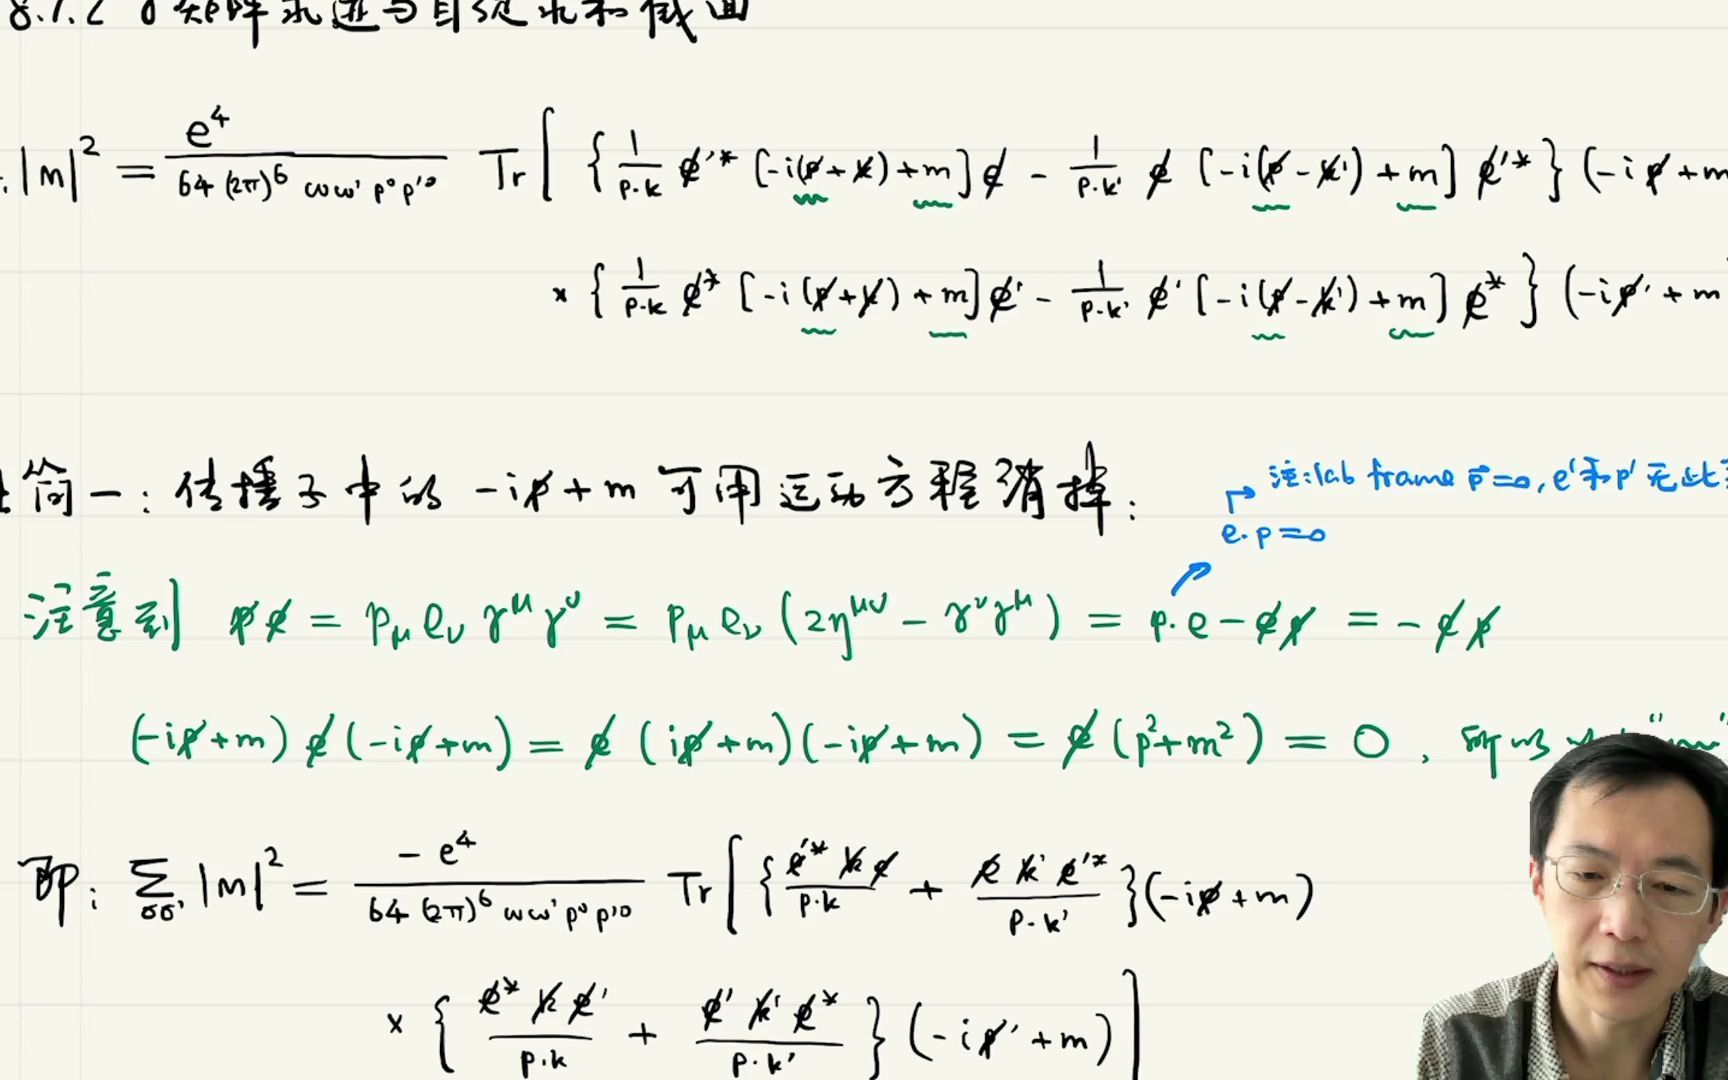 8.7.2 矩阵元进与自旋求和 截面
|M|² = e⁴ / 64 (2π)⁶ ω ω' p⁰ p'⁰ Tr[ { 1/p·k e̸'* [-i(p̸ + k̸) + m] e̸ - 1/p·k' e̸ [-i(p̸ - k̸') + m] e̸'* } (-i p̸ + m
× { 1/p·k e̸* [-i (p̸ + k̸) + m] e̸' - 1/p·k' e̸' [-i(p̸ - k̸') + m] e̸* } (-i p̸' + m
简一: 传播子中的 -i p̸ + m 可用运动方程消掉:
注: lab frame p⃗ = 0, e' 和 p' 无此
e·p = 0
注意到 p̸ e̸ = p_μ e_ν γ^μ γ^ν = p_μ e_ν (2η^{μν} - γ^ν γ^μ) = p·e - e̸ p̸ = - e̸ p̸
(-i p̸ + m) e̸ (-i p̸ + m) = e̸ (i p̸ + m)(-i p̸ + m) = e̸ (p² + m²) = 0 , 所以
即: Σ_{σσ'} |M|² = - e⁴ / 64 (2π)⁶ ω ω' p⁰ p'⁰ Tr[ { e̸'* k̸ e̸ / p·k + e̸ k̸' e̸'* / p·k' } (-i p̸ + m)
× { e̸* k̸ e̸' / p·k + e̸' k̸' e̸* / p·k' } (-i p̸' + m) ]